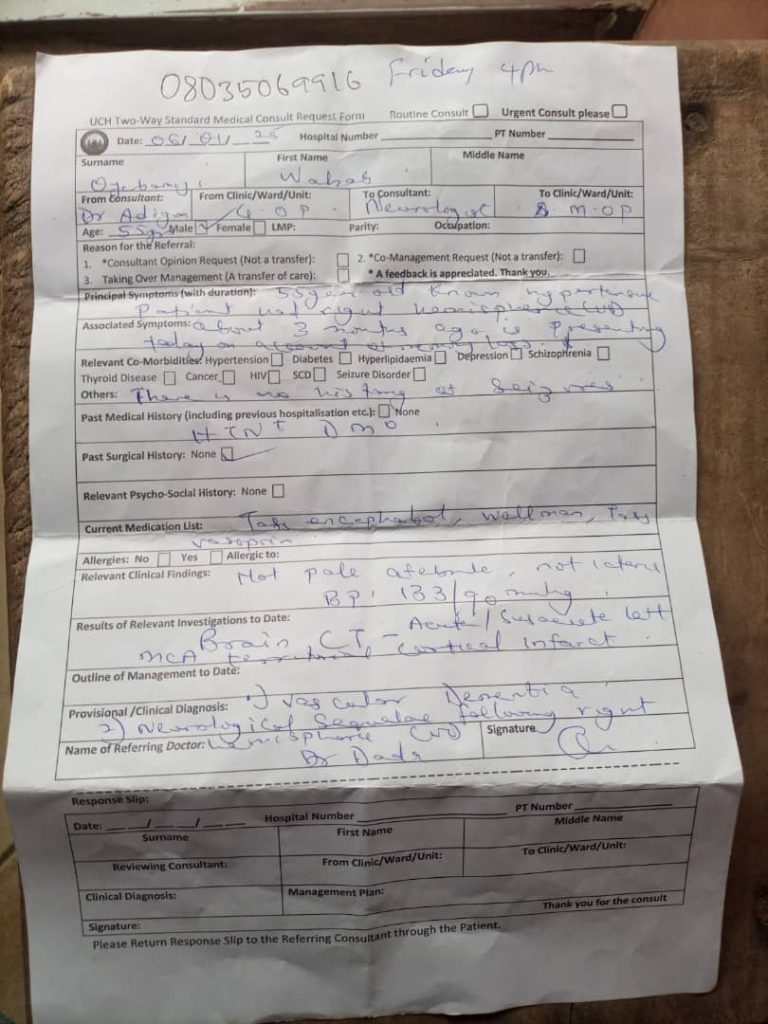 08035069916 Friday 4pm
UCH Two-Way Standard Medical Consult Request Form Routine Consult Urgent Consult please
Date: 05/01/26 Hospital Number PT Number
Surname First Name Middle Name
Wahab
From Consultant: From Clinic/Ward/Unit: To Consultant: To Clinic/Ward/Unit:
Dr Neurologist M.O.P
Age: 55y Male Female LMP: Parity: Occupation:
Reason for the Referral:
1. *Consultant Opinion Request (Not a transfer): 2. *Co-Management Request (Not a transfer):
3. Taking Over Management (A transfer of care): * A feedback is appreciated. Thank you.
Principal Symptoms (with duration): 55 year old known hypertensive
Patient had right hemispheric CVD
Associated Symptoms: about 3 months ago is presenting
today on account of memory loss.
Relevant Co-Morbidities: Hypertension Diabetes Hyperlipidaemia Depression Schizophrenia
Thyroid Disease Cancer HIV SCD Seizure Disorder
Others: There is no history of seizures
Past Medical History (including previous hospitalisation etc.): None
HTN+ DM0
Past Surgical History: None
Relevant Psycho-Social History: None
Current Medication List: Tabs encephabol, wellman, Tabs
vasoprin
Allergies: No Yes Allergic to:
Relevant Clinical Findings: Not pale afebrile, not icteric
BP: 133/90mmHg
Results of Relevant Investigations to Date: Acute/Subacute left
Brain CT -
MCA territorial cortical infarct.
Outline of Management to Date:
Provisional /Clinical Diagnosis: 1) vascular Dementia
2) Neurological Sequelae following right
Name of Referring Doctor: hemispheric CVD Signature
Dr Dada
Response Slip:
Date: __/__/__ Hospital Number PT Number
Surname First Name Middle Name
Reviewing Consultant: From Clinic/Ward/Unit: To Clinic/Ward/Unit:
Clinical Diagnosis: Management Plan:
Thank you for the consult
Signature:
Please Return Response Slip to the Referring Consultant through the Patient.